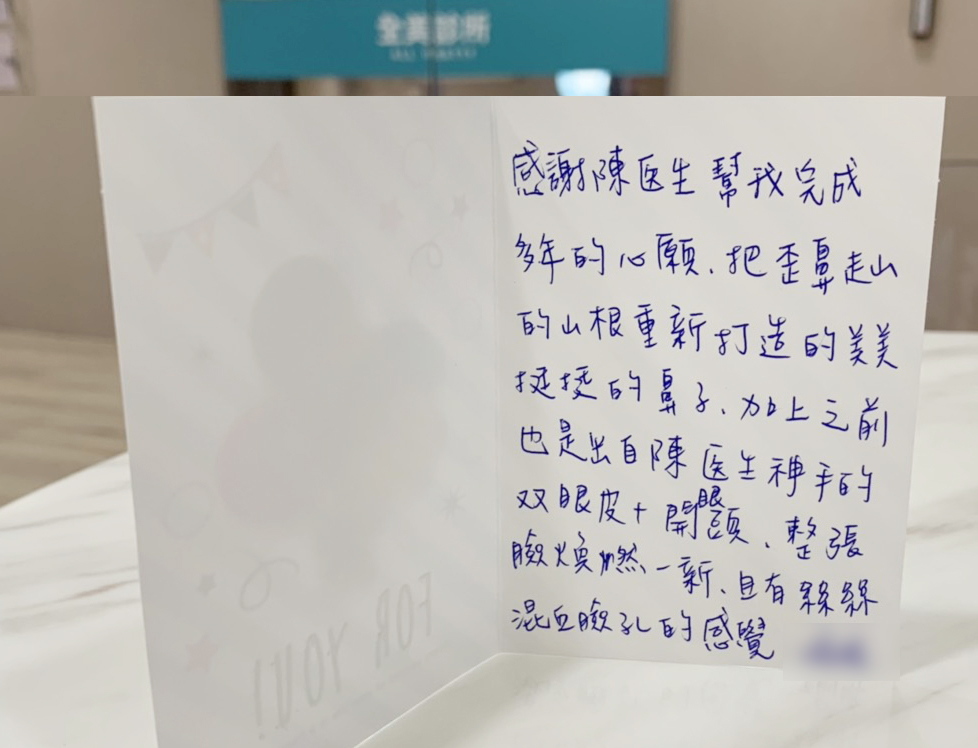 全美診所
ALL BEAUTY
感謝陳医生幫我完成
多年的心願、把歪鼻走山
的山根重新打造的美美
挺挺的鼻子、加上之前
也是出自陳医生神手的
双眼皮+開眼頭、整張
臉煥燃一新、且有絲絲
混血臉孔的感覺
FOR YOU!